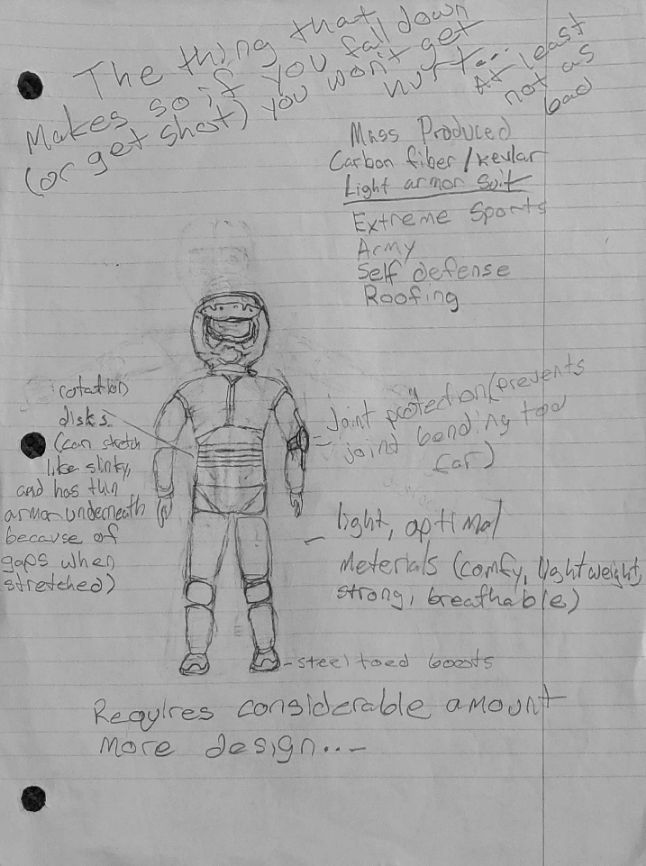 The thing that
Makes so if you fall down
(or get shot) you won't get
hurt... At least
not as
bad
Mass Produced
Carbon fiber/kevlar
Light armor suit
Extreme Sports
Army
Self defense
Roofing
rotation
disks
(can stretch
like slinky,
and has thin
armor underneath
because of
gaps when
stretched)
- Joint protection (prevents
joind bending too
far)
- light, optimal
Meterials (comfy, lightweight,
strong, breathable)
- steel toed boosts
Requires considerable amount
more design...-